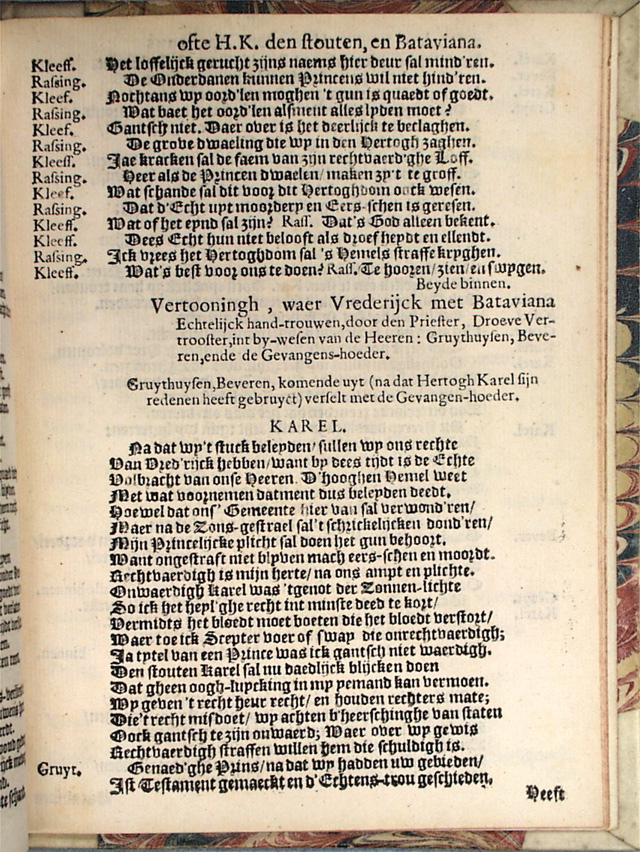 ofte H.K. den stouten, en Bataviana.
Kleeff. Het loffelijck gerucht zijns naems hier deur sal mind'ren.
Rassing. De Onderdanen kunnen Princens wil niet hind'ren.
Kleef. Nochtans wy oord'len moghen 't gun is quaedt of goedt.
Rassing. Wat baet het oord'len alsment alles lyden moet?
Kleef. Gantsch niet. Daer over is het deerlijck te beclaghen.
Rassing. De grove dwaeling die wy in den Hertogh zaghen.
Kleeff. Jae kracken sal de faem van zijn rechtvaerd'ghe Loff.
Rassing. Heer als de Princen dwaelen/ maken zy't te groff.
Kleef. Wat schande sal dit voor dit Hertoghdom oock wesen.
Rassing. Dat d'Echt uyt moordery en Eers-schen is geresen.
Kleeff. Wat of het eynd sal zijn? Rass. Dat's God alleen bekent.
Kleeff. Dees Echt hun niet belooft als droefheydt en ellendt.
Rassing. Ick vrees het Hertoghdom sal 's Hemels straffe kryghen.
Kleeff. Wat's best voor ons te doen? Rass. Te hooren/ zien/ en swygen.
Beyde binnen.
Vertooningh, waer Vrederijck met Bataviana
Echtelijck hand-trouwen, door den Priester, Droeve Ver-
trooster, int by-wesen van de Heeren: Gruythuysen, Beve-
ren, ende de Gevangens-hoeder.
Gruythuysen, Beveren, komende uyt (na dat Hertogh Karel sijn
redenen heeft gebruyct) verselt met de Gevangen-hoeder.
KAREL.
Na dat wy't stuck beleyden/ sullen wy ons rechte
Van Vred'rijck hebben/ want by dees tijdt is de Echte
Volbracht van onse Heeren. D'hooghen Hemel weet
Met wat voornemen datment dus beleyden deedt.
Hoewel dat ons' Gemeente hier van sal verwond'ren/
Maer na de Zons-gestrael sal't schrickelijcken dond'ren/
Mijn Princelijcke plicht sal doen het gun behoort.
Want ongestraft niet blyven mach eers-schen en moordt.
Rechtvaerdigh is mijn herte/ na ons ampt en plichte.
Onwaerdigh Karel was 'tgenot der Zonnen-lichte
So ick het heyl'ghe recht int minste deed te kort/
Vermidts het bloedt moet boeten die het bloedt verstort/
Waer toe ick Scepter voer of sway die onrechtvaerdigh;
Ja tytel van een Prince was ick gantsch niet waerdigh.
Den stouten Karel sal nu daedlijck blijcken doen
Dat gheen oogh-luycking in my yemand kan vermoen.
Wy geven 't recht heur recht/ en houden rechters mate;
Die't recht misdoet/ wy achten b'heerschinghe van staten
Oock gantsch te zijn onwaerd; Waer over wy gewis
Rechtvaerdigh straffen willen hem die schuldigh is.
Gruyt. Genaed'ghe Prins/ na dat wy hadden uw gebieden/
Ist Testament gemaeckt en d'Echtens-trou geschieden.
Heeft